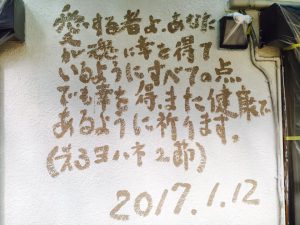 愛する者よ、あなた
が魂に幸を得て
いるようにすべての点
でも幸を得、また健康で
あるように祈ります。
ヨハネ2節)
2017.1.12